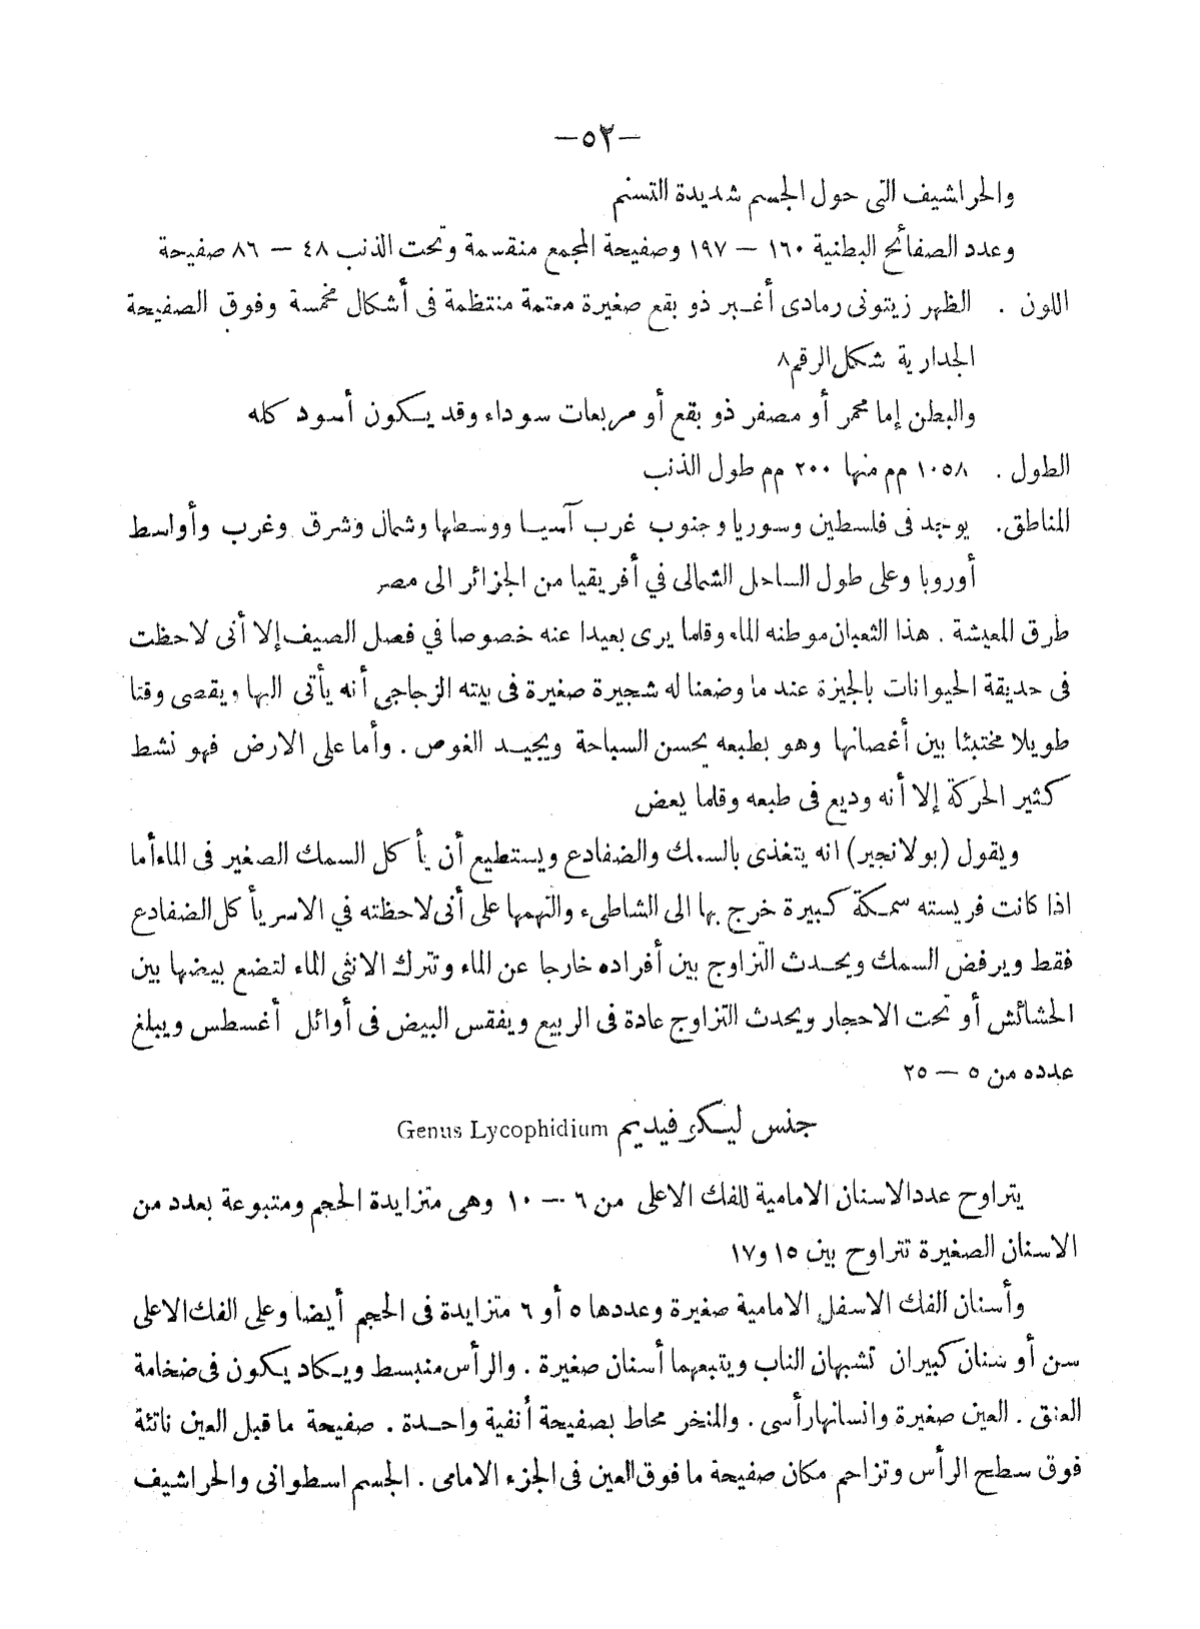 —٥٢—
والحراشيف التى حول الجسم شديدة التسنم
وعدد الصفائح البطنية ١٦٠ — ١٩٧ وصفيحة المجمع منقسمة وتحت الذنب ٤٨ — ٨٦ صفيحة
اللون . الظهر زيتونى رمادى أغبر ذو بقع صغيرة معتمة منتظمة فى أشكال مخمسة وفوق الصفيحة
الجدارية شكل الرقم ٨
والبطن إما محمر أو مصفر ذو بقع أو مربعات سوداء وقد يكون أسود كله
الطول . ١٠٥٨ مم منها ٢٠٠ مم طول الذنب
المناطق. يوجد فى فلسطين وسوريا وجنوب غرب آسيا ووسطها وشمال وشرق وغرب وأواسط
أوروبا وعلى طول الساحل الشمالى في أفريقيا من الجزائر الى مصر
طرق المعيشة . هذا الثعبان موطنه الماء وقلما يرى بعيدا عنه خصوصا في فصل الصيف إلا أنى لاحظت
فى حديقة الحيوانات بالجيزة عند ما وضعنا له شجيرة صغيرة فى بيته الزجاجى أنه يأتى اليها ويقضى وقتا
طويلا مختبئا بين أغصانها وهو بطبعه يحسن السباحة ويجيد الغوص . وأما على الارض فهو نشط
كثير الحركة إلا أنه وديع فى طبعه وقلما يعض
ويقول (بولانجير) انه يتغذى بالسمك والضفادع ويستطيع أن يأكل السمك الصغير فى الماء أما
اذا كانت فريسته سمكة كبيرة خرج بها الى الشاطىء والتهمها على أنى لاحظته في الاسر يأكل الضفادع
فقط ويرفض السمك ويحدث التزاوج بين أفراده خارجا عن الماء وتترك الانثى الماء لتضع بيضها بين
الحشائش أو تحت الاحجار ويحدث التزاوج عادة فى الربيع ويفقس البيض فى أوائل أغسطس ويبلغ
عدده من ٥ — ٢٥
جنس ليكوفيديم Genus Lycophidium
يتراوح عدد الاسنان الامامية للفك الاعلى من ٦ — ١٠ وهى متزايدة الحجم ومتبوعة بعدد من
الاسنان الصغيرة تتراوح بين ١٥ و١٧
وأسنان الفك الاسفل الامامية صغيرة وعددها ٥ أو ٦ متزايدة فى الحجم أيضا وعلى الفك الاعلى
سن أو سنان كبيران تشبهان الناب ويتبعهما أسنان صغيرة . والرأس منبسط ويكاد يكون فى ضخامة
العنق . العين صغيرة وانسانها رأسى . والمنخر محاط بصفيحة أنفية واحدة . صفيحة ما قبل العين ناتئة
فوق سطح الرأس وتزاحم مكان صفيحة ما فوق العين فى الجزء الامامى . الجسم اسطوانى والحراشيف